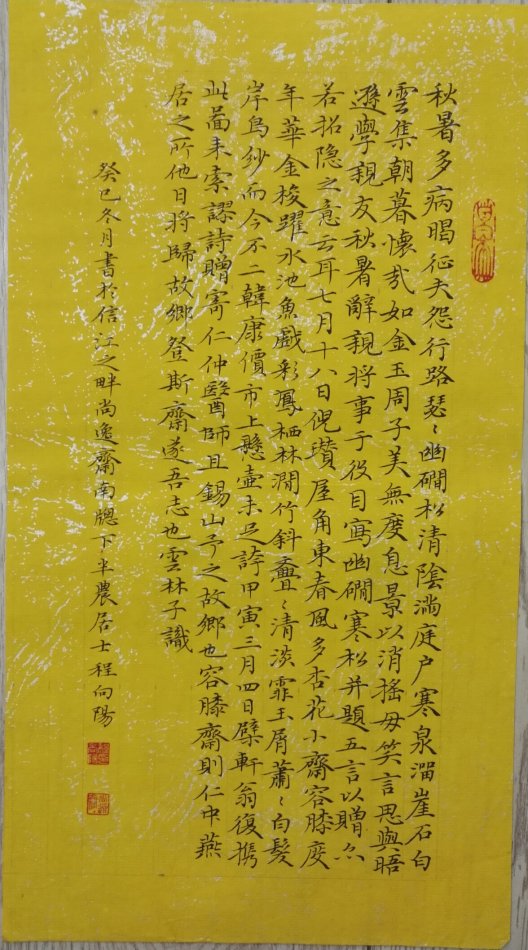 秋暑多病暍征夫怨行路瑟〻幽磵松清陰滿庭户寒泉溜崖石白
雲集朝暮懷哉如金玉周子美無度息景以消搖毋笑言思與晤
遜學親友秋暑辭親將事于役因寫幽磵寒松并題五言以贈亦
若招隱之意云耳七月十八日倪瓚屋角東春風多杏花小齋容膝度
年華金梭躍水池魚戲彩鳳栖林澗竹斜亹〻清淡霏玉屑蕭〻白髮
岸烏紗而今不二韓康價市上懸壺未足誇甲寅三月四日檗軒翁復攜
此啚来索謬詩贈寄仁仲醫師且錫山予之故鄉也容膝齋則仁中燕
居之所他日將歸故鄉登斯齋遂吾志也雲林子識
癸巳冬月書於信江之畔尚逸齋南牕下半農居士程向陽